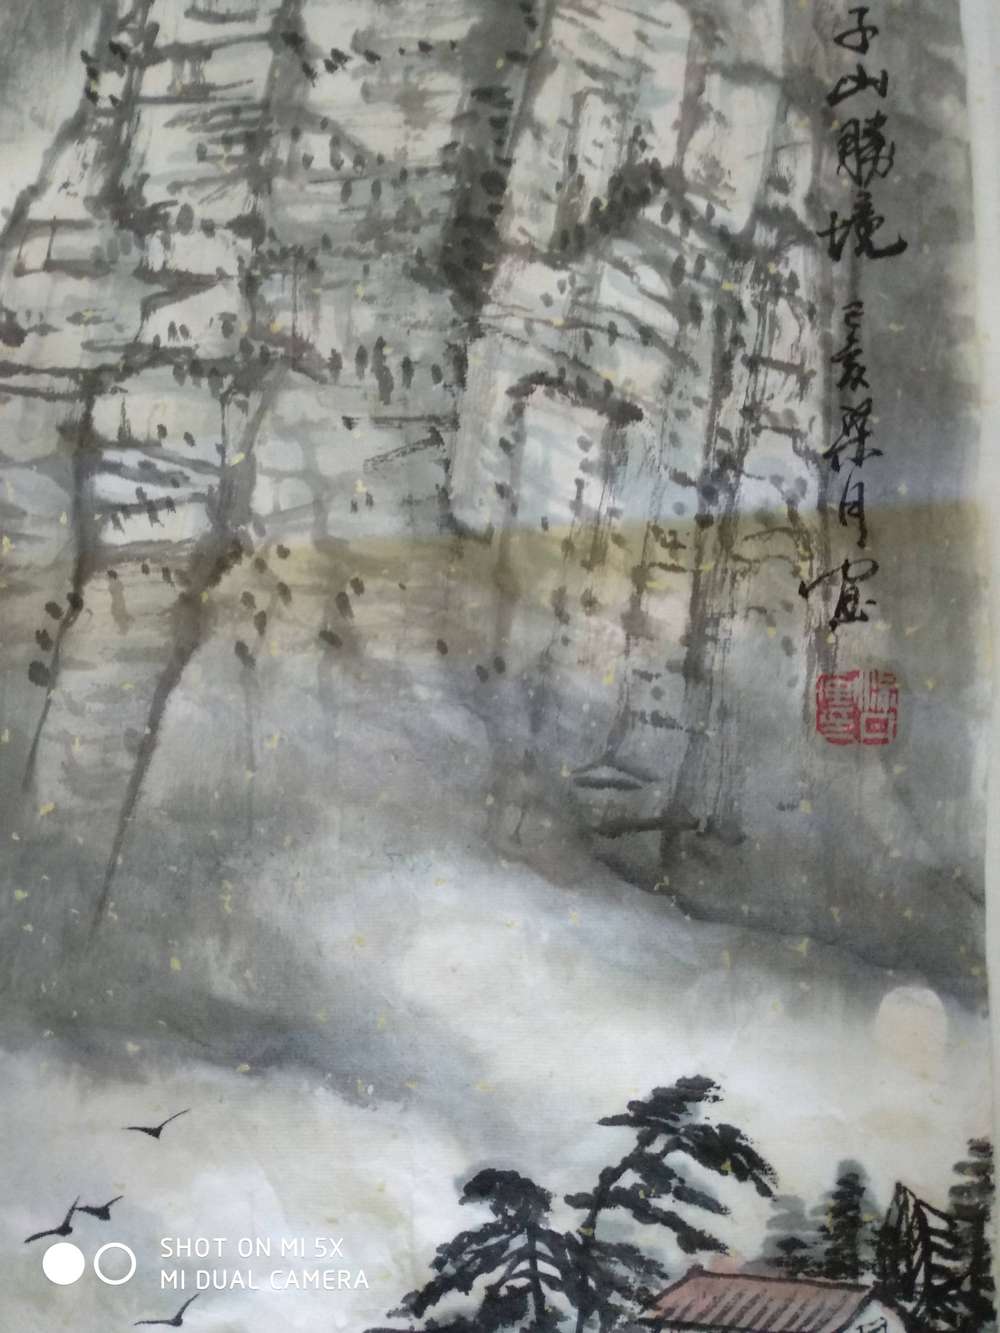 子山勝境 己亥桀月寫
SHOT ON MI 5X
MI DUAL CAMERA